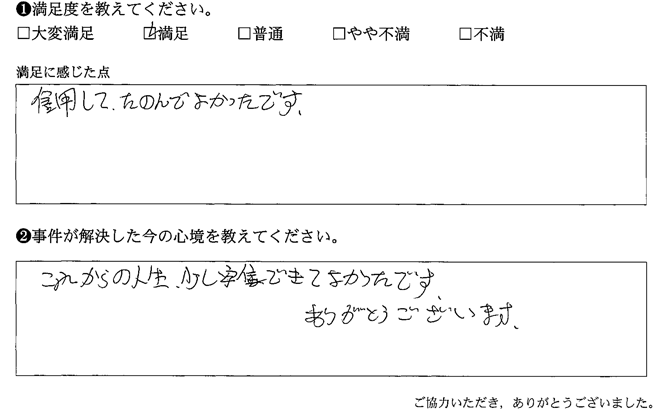 ❶満足度を教えてください。
□大変満足 □満足 □普通 □やや不満 □不満
満足に感じた点
信用して、たのんでよかったです。
❷事件が解決した今の心境を教えてください。
これからの人生、少し安信できてよかったです。
ありがとうございます。
ご協力いただき，ありがとうございました。